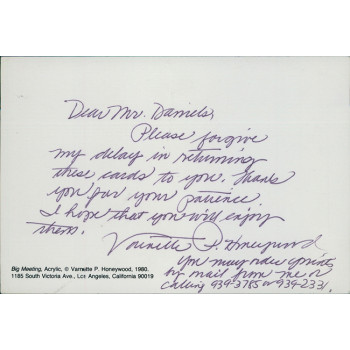 Dear Mr. Daniels,
Please forgive
my delay in returning
these cards to you. Thanks
you for your patience.
I hope that you will enjoy
them.
Varnette P. Honeywood
you may order prints
by mail from me or
calling 939-3785 or 939-2331.
Big Meeting, Acrylic, © Varnette P. Honeywood, 1980.
1185 South Victoria Ave., Los Angeles, California 90019